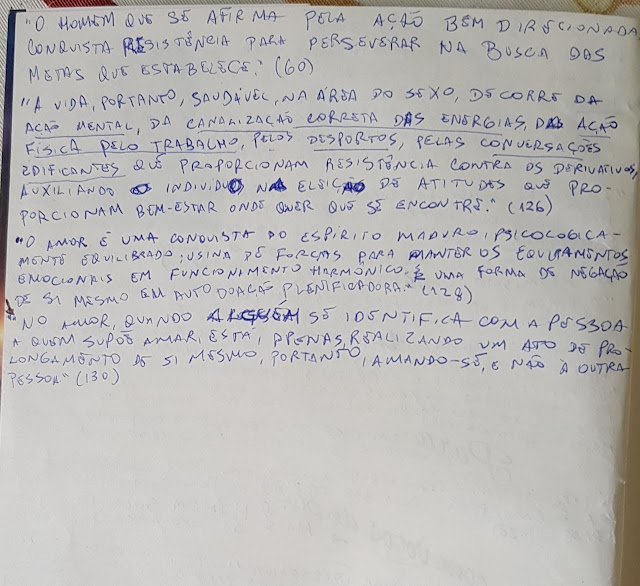 "O HOMEM QUE SE AFIRMA PELA AÇÃO BEM DIRECIONADA,
CONQUISTA RESISTÊNCIA PARA PERSEVERAR NA BUSCA DAS
METAS QUE ESTABELECE." (60)
"A VIDA, PORTANTO, SAUDÁVEL, NA ÁREA DO SEXO, DECORRE DA
AÇÃO MENTAL, DA CANALIZAÇÃO CORRETA DAS ENERGIAS, DA AÇÃO
FÍSICA PELO TRABALHO, PELOS DESPORTOS, PELAS CONVERSAÇÕES
EDIFICANTES QUE PROPORCIONAM RESISTÊNCIA CONTRA OS DERIVATIVOS,
AUXILIANDO O INDIVIDUO NA ELEIÇÃO DE ATITUDES QUE PRO-
PORCIONAM BEM-ESTAR ONDE QUER QUE SE ENCONTRE." (126)
"O AMOR É UMA CONQUISTA DO ESPÍRITO MADURO, PSICOLOGICA-
MENTE EQUILIBRADO; USINA DE FORÇAS PARA MANTER OS EQUIPAMENTOS
EMOCIONAIS EM FUNCIONIMENTO HARMÔNICO. É UMA FORMA DE NEGAÇÃO
DE SI MESMO EM AUTODOAÇÃO PLENIFICADORA." (128)
"NO AMOR, QUANDO ALGUÉM SE IDENTIFICA COM A PESSOA
A QUEM SUPÕE AMAR, ESTÁ, APENAS, REALIZANDO UM ATO DE PRO-
LONGAMENTO DE SI MESMO, PORTANTO, AMANDO-SE, E NÃO À OUTRA
PESSOA." (130)